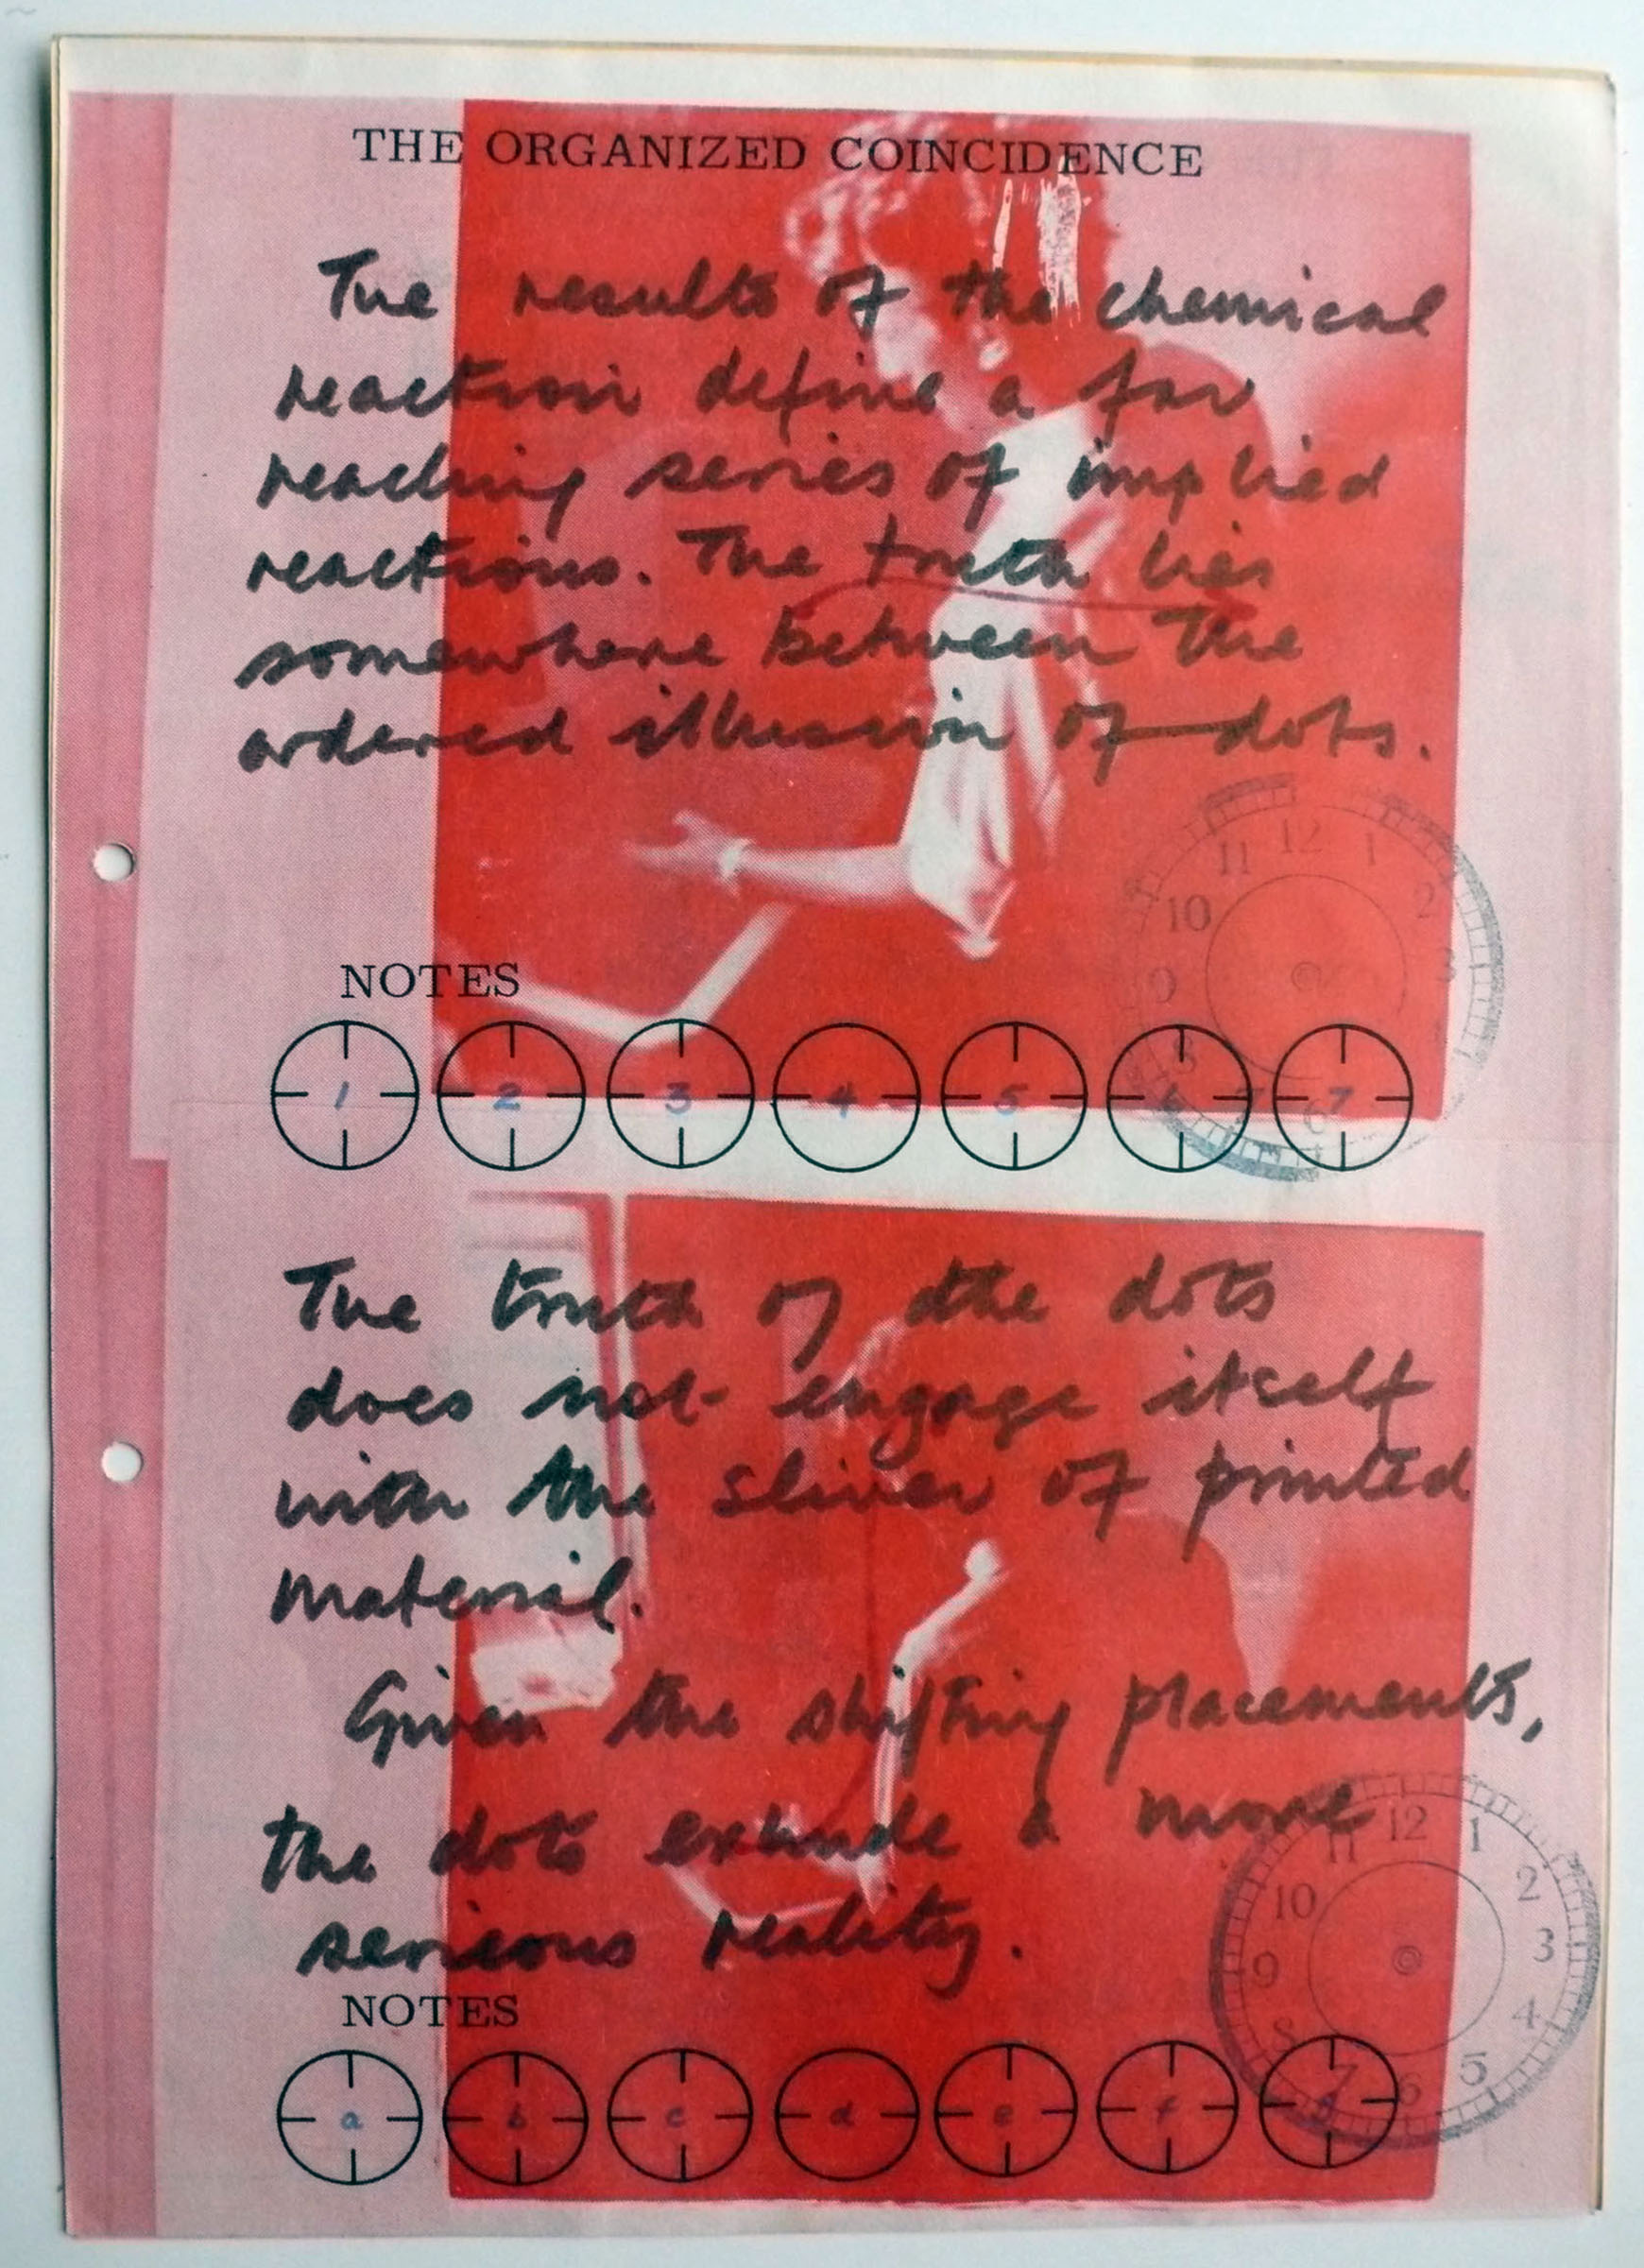 THE ORGANIZED COINCIDENCE
The results of the chemical
reaction define a far
reaching series of implied
reactions. The truth lies
somewhere between the
ordered illusion of dots.
12 1 2 3 6 8 9 10 11
NOTES
1 2 3 4 5 6 7
The truth of the dots
does not engage itself
with the sliver of printed
material.
Given the shifting placements,
the dots extrude a more
serious reality.
12 1 2 3 4 5 6 7 8 9 10 11
NOTES
a b c d e f g